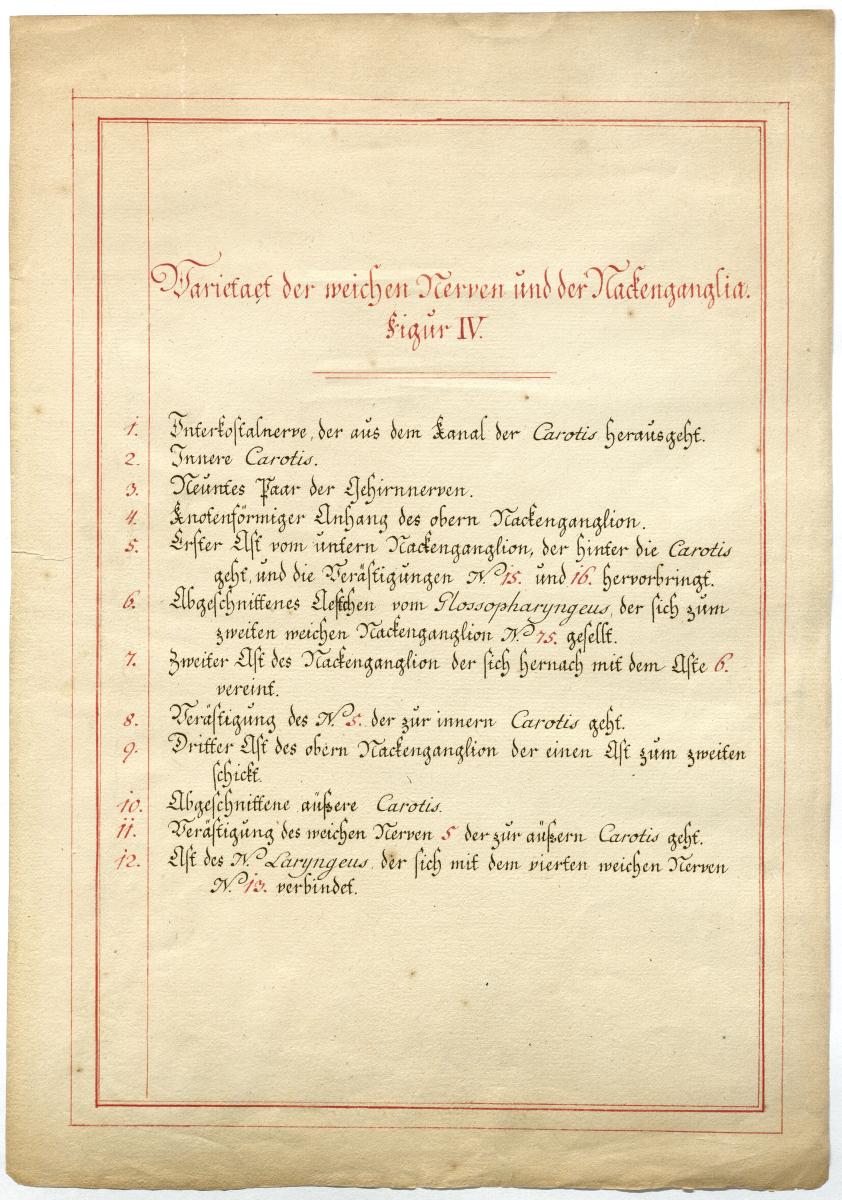 Varietaet der weichen Nerven und der Nackenganglia.
Figur IV.
1. Interkostalnerve, der aus dem Kanal der Carotis herausgeht.
2. Innere Carotis.
3. Neuntes Paar der Gehirnnerven.
4. Knotenförmiger Anhang des obern Nackenganglion.
5. Erster Ast vom untern Nackenganglion, der hinter die Carotis
geht, und die Verästigungen N.º 15. und 16. hervorbringt.
6. Abgeschnittenes Aestchen vom Glossopharyngeus, der sich zum
zweiten weichen Nackenganglion N.º 15. gesellt.
7. Zweiter Ast des Nackenganglion der sich hernach mit dem Aste 6.
vereint.
8. Verästigung des N.º 5. der zur innern Carotis geht.
9. Dritter Ast des obern Nackenganglion der einen Ast zum zweiten
schickt.
10. Abgeschnittene äußere Carotis.
11. Verästigung des weichen Nerven 5 der zur äußern Carotis geht.
12. Ast des N.º Laryngeus, der sich mit dem vierten weichen Nerven
N.º 13. verbindet.